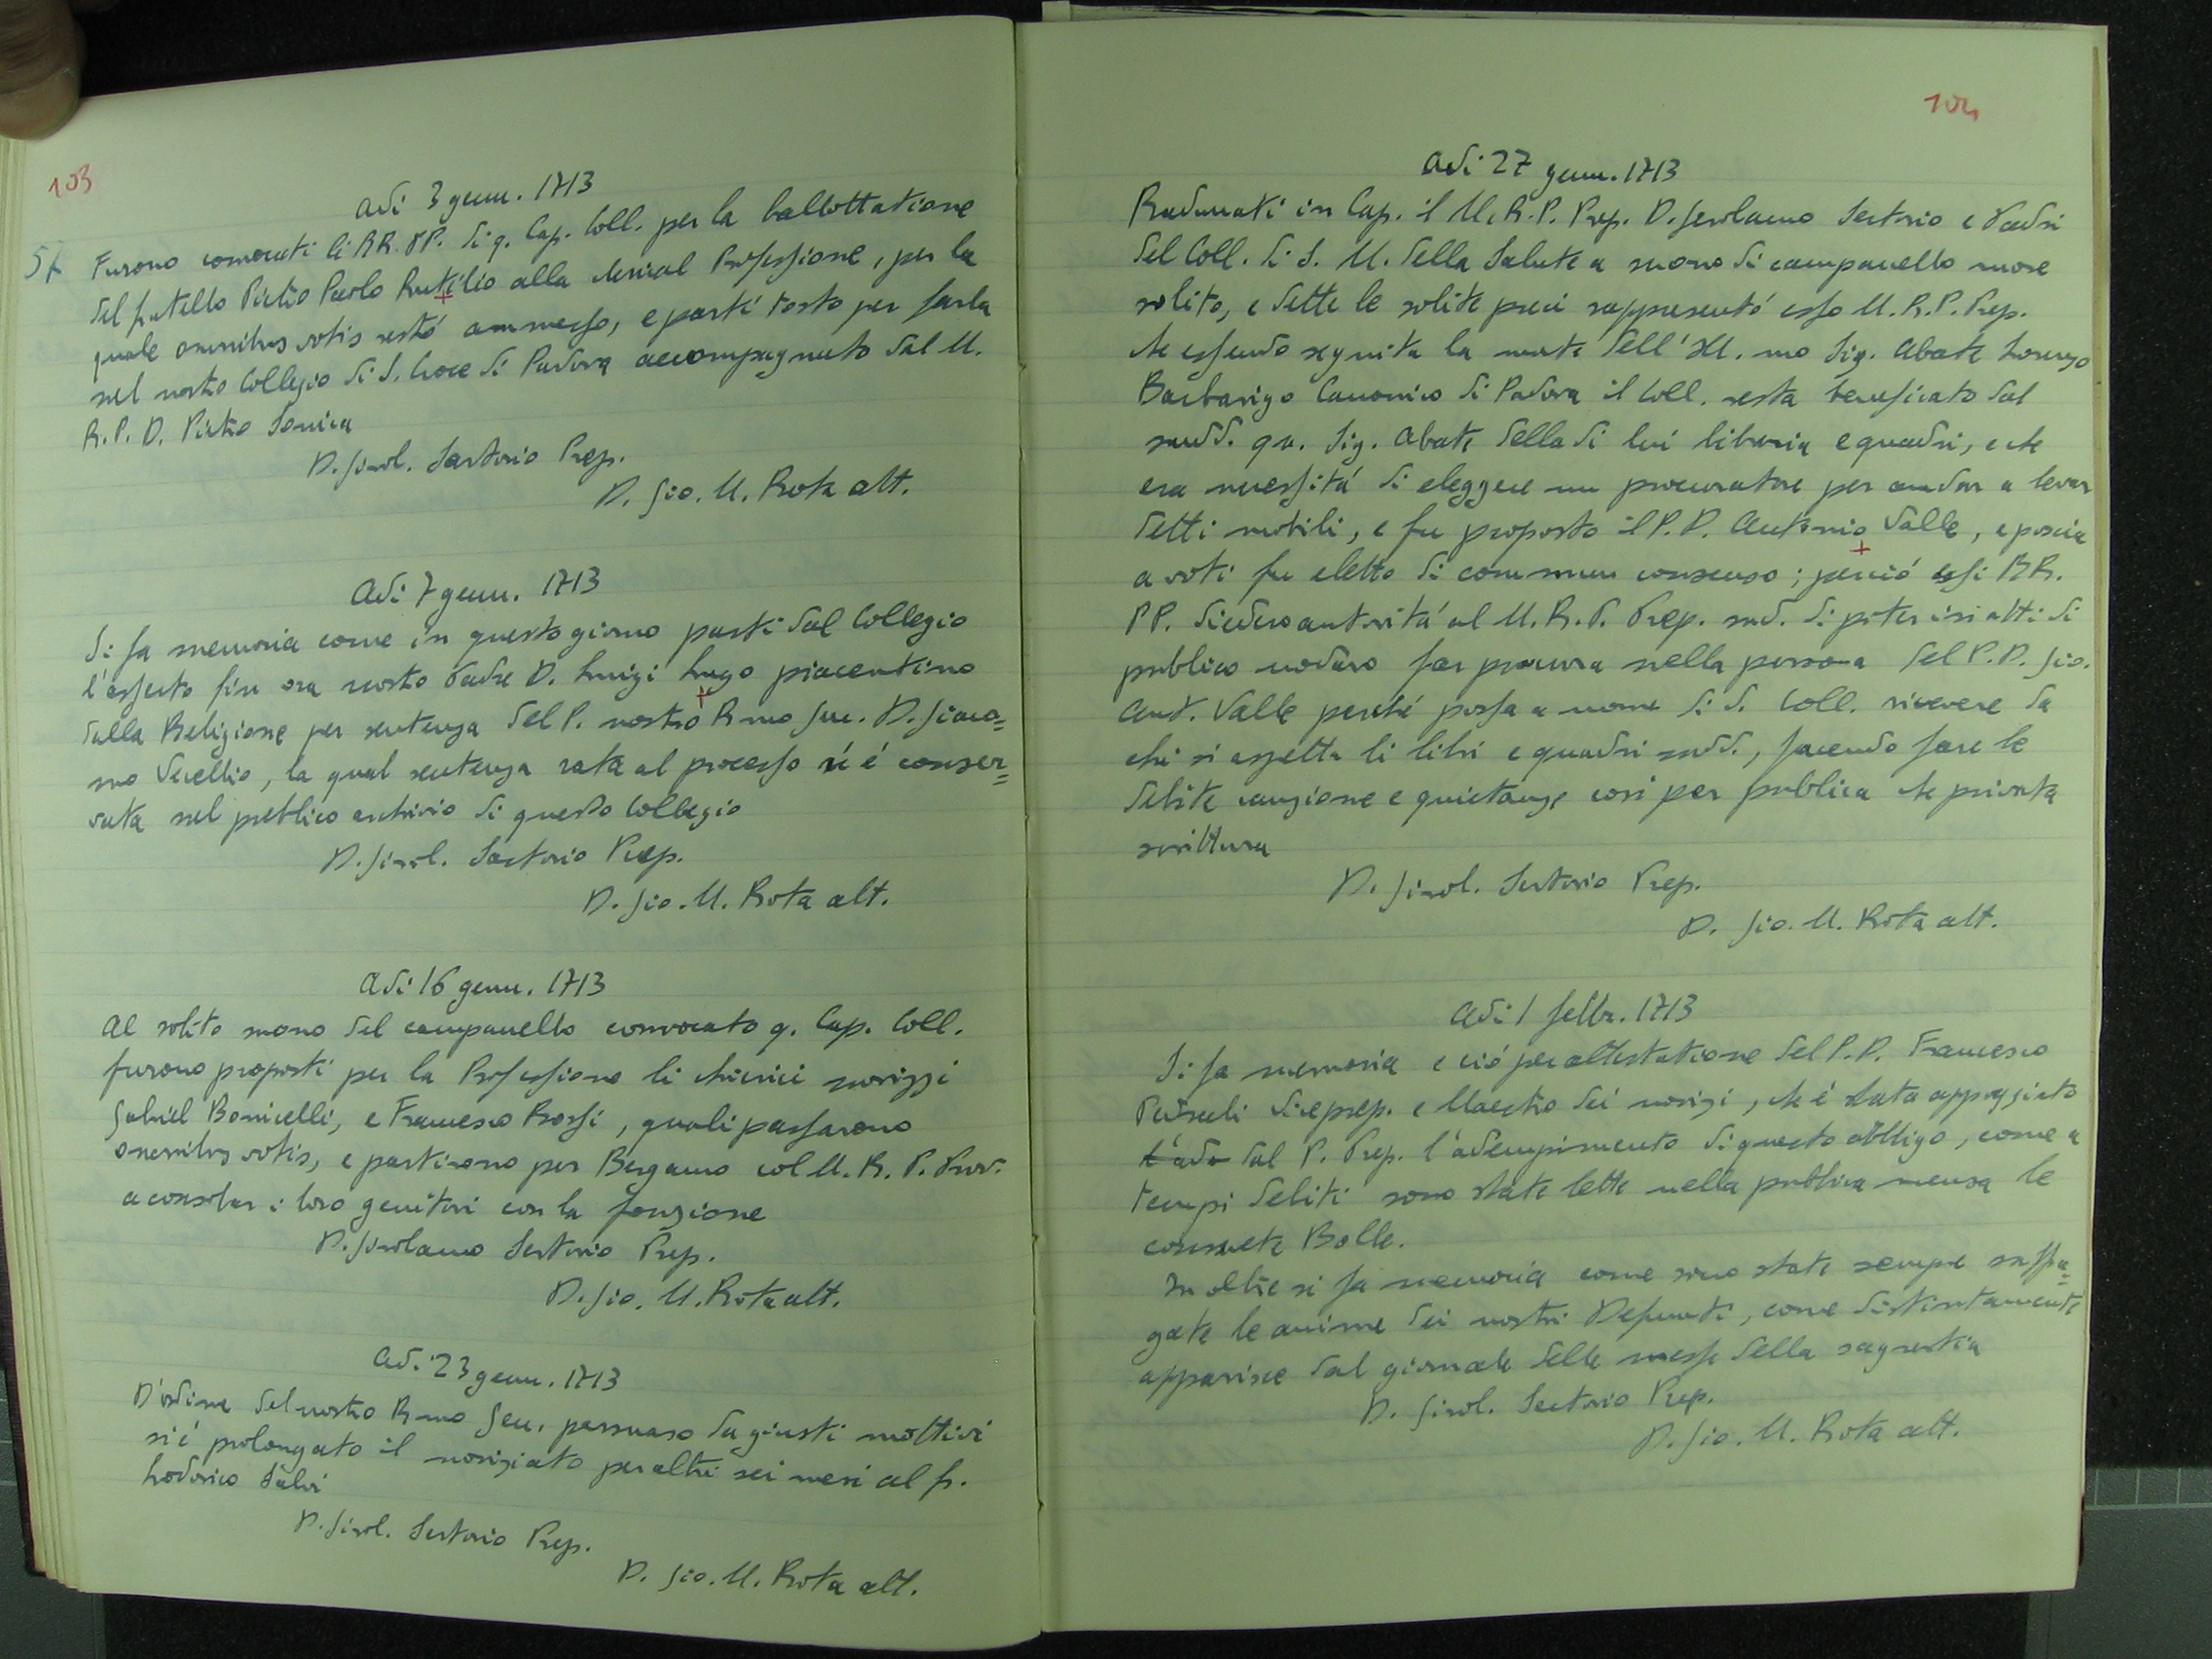 103
adi 3 genn. 1713
57 Furono convocati li RR. PP. di q. Cap. Coll. per la ballottatione
del fratello Pietro Paolo Rutilio alla clerical Professione, per la
quale omnibus votis restó ammesso, e partí tosto per farla
nel nostro Collegio di S. Croce di Padova accompagnato dal M.
R. P. D. Pietro
D. Girol. Sertorio Prep.
D. Gio. M. Rota att.
Adi 7 genn. 1713
Si fa memoria come in questo giorno partí dal Collegio
l'espulso fin ora nostro Padre D. Luigi Lugo piacentino
dalla Religione per sentenza del P. nostro R.mo Gen. D. Giaco=
mo Vecellio, la qual sentenza rata al processo si é conser=
vata nel publico archivio di questo Collegio
D. Girol. Sertorio Prep.
D. Gio. M. Rota att.
Adi 16 genn. 1713
Al solito suono del campanello convocato q. Cap. Coll.
furono proposti per la Professione li chierici novizzi
Gabriel Bonicelli, e Francesco Rossi, quali passarono
omnibus votis, e partirono per Bergamo col M. R. P. Prov.
a consolar i loro genitori con la fonzione
D. Girolamo Sertorio Prep.
D. Gio. M. Rota att.
Adi 23 genn. 1713
D'ordine del nostro R.mo Gen. persuaso da giusti mottivi
si é prolongato il noviziato per altri sei mesi al fr.
Lodovico Salvi
D. Girol. Sertorio Prep.
D. Gio. M. Rota att.
104
Adi 27 genn. 1713
Radunati in Cap. il M. R. P. Prep. D. Gerolamo Sertorio e Padri
del Coll. di S. M. della Salute a suono di campanello more
solito, e dette le solite preci rappresentó esso M. R. P. Prep.
che essendo seguita la morte dell'Ill.mo Sig. Abate Lorenzo
Barbarigo Canonico di Padova il Coll. resta beneficato dal
sudd. qu. Sig. Abate della di lui libraria e quadri, e che
era necessitá di eleggere un procuratore per andar a levar
detti mobili, e fu proposto il P. D. Antonio Valle, e poscia
a voti fu eletto di commun consenso; perció essi RR.
PP. diedero autoritá al M. R. P. Prep. sud. di poter in atti di
publico nodaro far procura nella persona del P. D. Gio.
Ant. Valle perché possa a nome di d. Coll. ricevere da
chi si aspetta li libri e quadri sudd., facendo fare le
debite cauzione e quietanze cosi per publica che privata
scrittura
D. Girol. Sertorio Prep.
D. Gio. M. Rota att.
Adi 1 febbr. 1713
Si fa memoria e ció per attestatione del P. D. Francesco
Viceprep. e Maestro dei novizi, che é stato appoggiato
l'ade dal P. Prep. l'adempimento di questo obbligo, come a
tempi debiti sono state lette nella publica mensa le
consuete Bolle.
In oltre si fa memoria come sono state sempre suffra=
gate le anime dei nostri Defunti, come distintamente
apparisce dal giornale delle messe della sagrestia
D. Girol. Sertorio Prep.
D. Gio. M. Rota att.